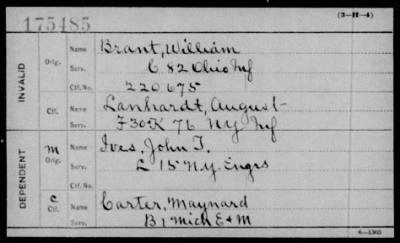 (3-H-4)
175485
INVALID
Orig.
Name
Brant, William
Serv.
C 82 Ohio Inf
Ctf. No.
220675
Ctf.
Name
Lanhardt, August
Serv.
F 30 & K 76 NY Inf
DEPENDENT
m
Orig.
Name
Ives, John T.
Serv.
L 15 N.Y. Engrs
Ctf. No.
c
Ctf.
Name
Carter, Maynard
Serv.
B 1 Mich E & M
6-1303